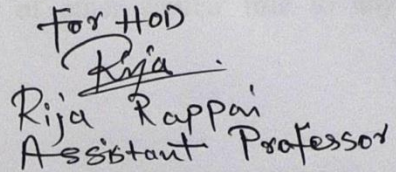 For HOD
Rija
Rija Rappai
Assistant Professor